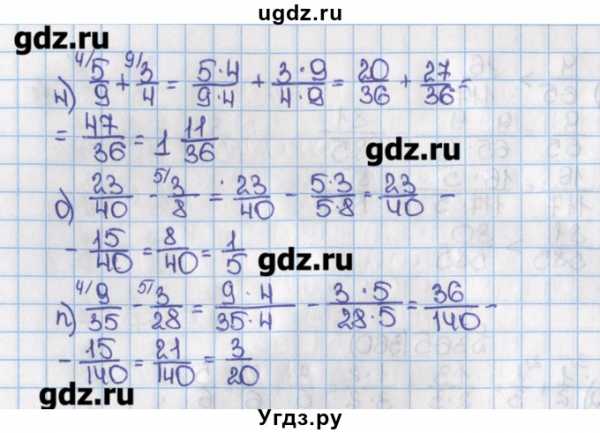 gdz.ru
gdz.ru
н) 4/ 5/9 + 9/ 3/4 = 5·4/9·4 + 3·9/4·9 = 20/36 + 27/36 =
= 47/36 = 1 11/36
gdz.ru
о) 23/40 - 5/ 3/8 = 23/40 - 5·3/5·8 = 23/40 -
- 15/40 = 8/40 = 1/5
gdz.ru
п) 4/ 9/35 - 5/ 3/28 = 9·4/35·4 - 3·5/28·5 = 36/140 -
- 15/140 = 21/140 = 3/20
gdz.ru
Угдз.ру